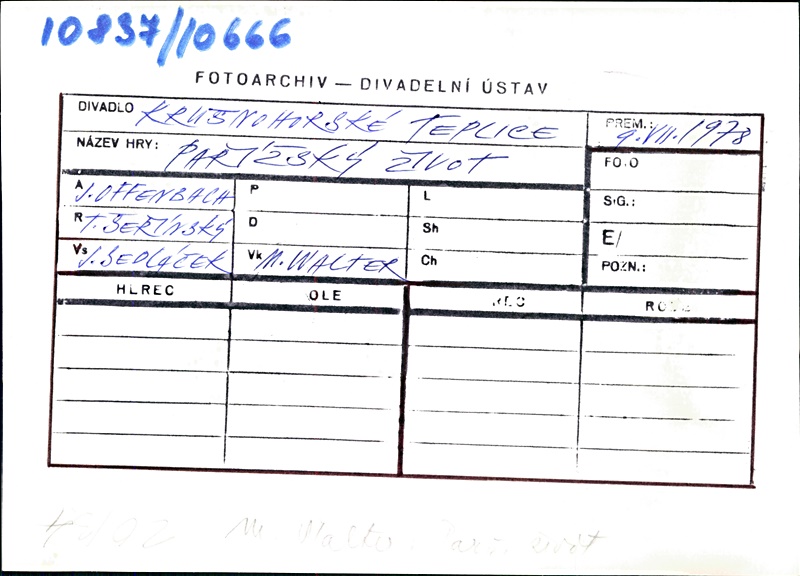 10837/10666
FOTOARCHIV — DIVADELNÍ ÚSTAV
DIVADLO KRUŠNOHORSKÉ TEPLICE
PREM.: 9.VII.1978
NÁZEV HRY: PAŘÍŽSKÝ ŽIVOT
FOTO
A J. OFFENBACH
P
L
SIG.:
R T. ŠEŘÍNSKÝ
D
Sh
E/
Vs J. SEDLÁČEK
Vk M. WALTER
Ch
POZN.:
HEREC
OLE
M. Walter